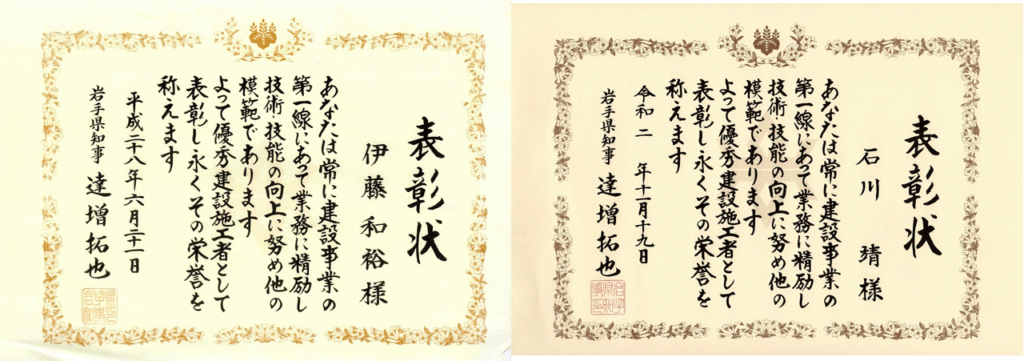 表彰状
伊藤和裕様
あなたは常に建設事業の
第一線にあって業務に精励し
技術・技能の向上に努め他の
模範であります
よって優秀建設施工者として
表彰し永くその栄誉を
称えます
平成二十八年六月二十一日
岩手県知事 達増拓也
表彰状
石川 靖様
あなたは常に建設事業の
第一線にあって業務に精励し
技術・技能の向上に努め他の
模範であります
よって優秀建設施工者として
表彰し永くその栄誉を
称えます
令和二 年十一月十九日
岩手県知事 達増拓也